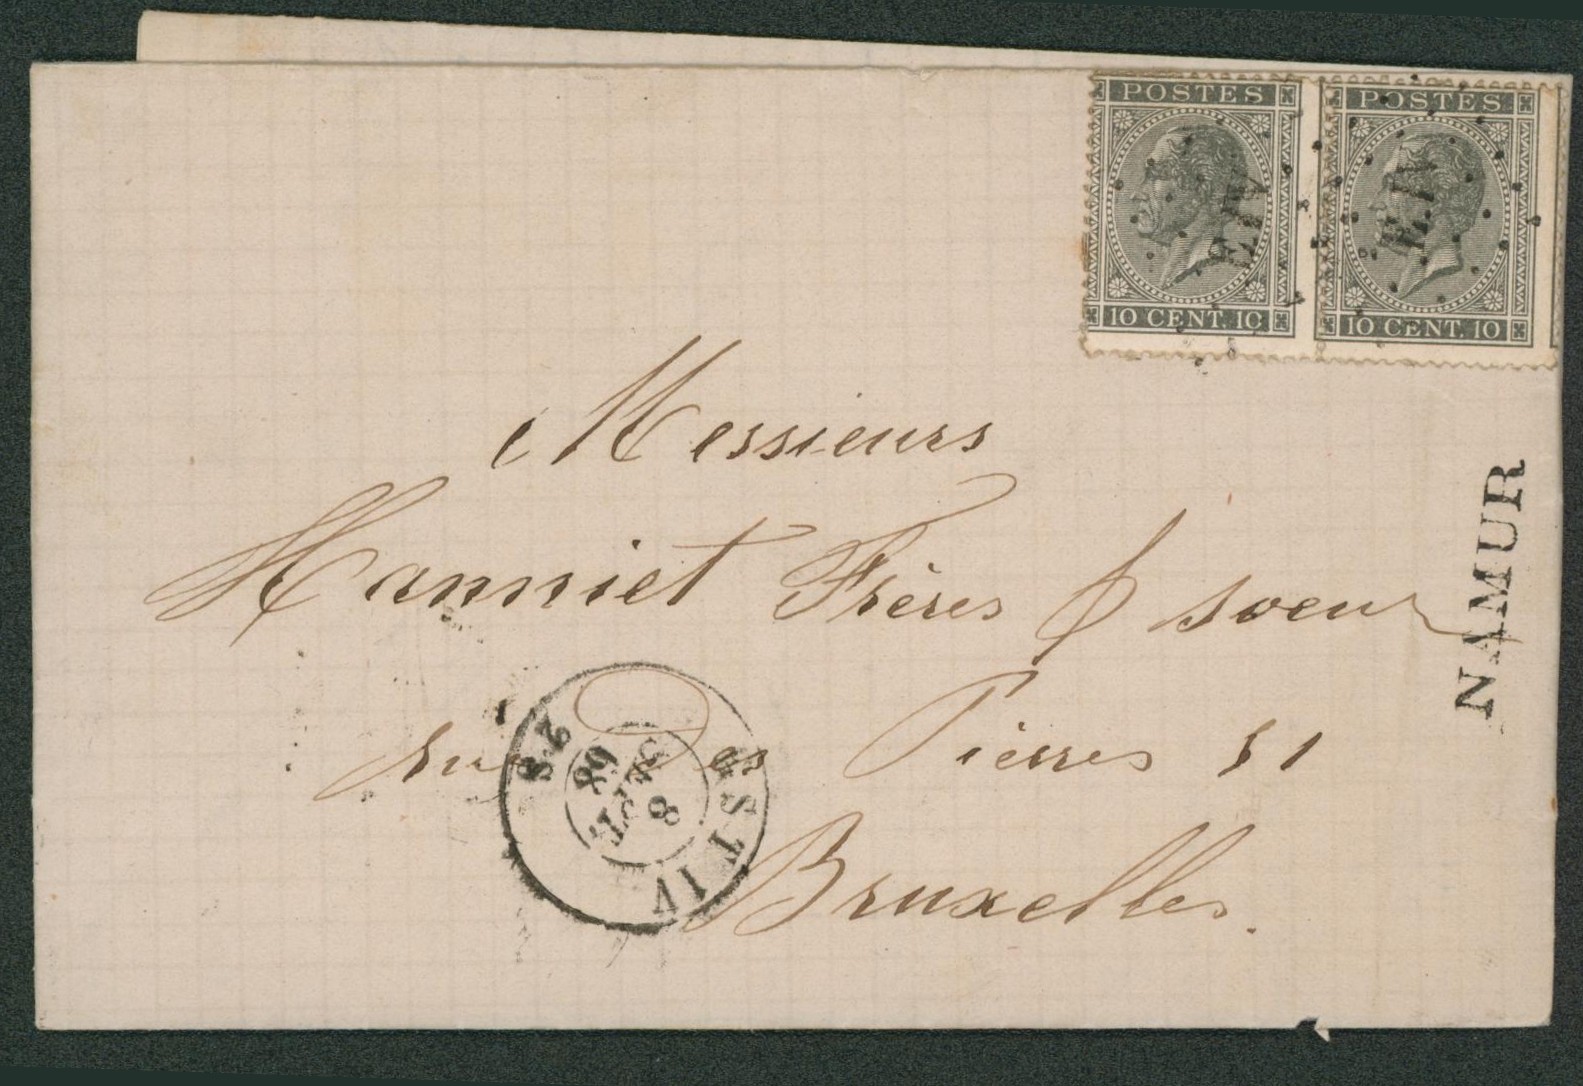 POSTES POSTES
E.IV E.IV
10 CENT. 10 10 CENT. 10
Messieurs
Hanniet Frères & soeur
NAMUR
rue des Pierres 51
Bruxelles.
EST IV
8
SEPT
68